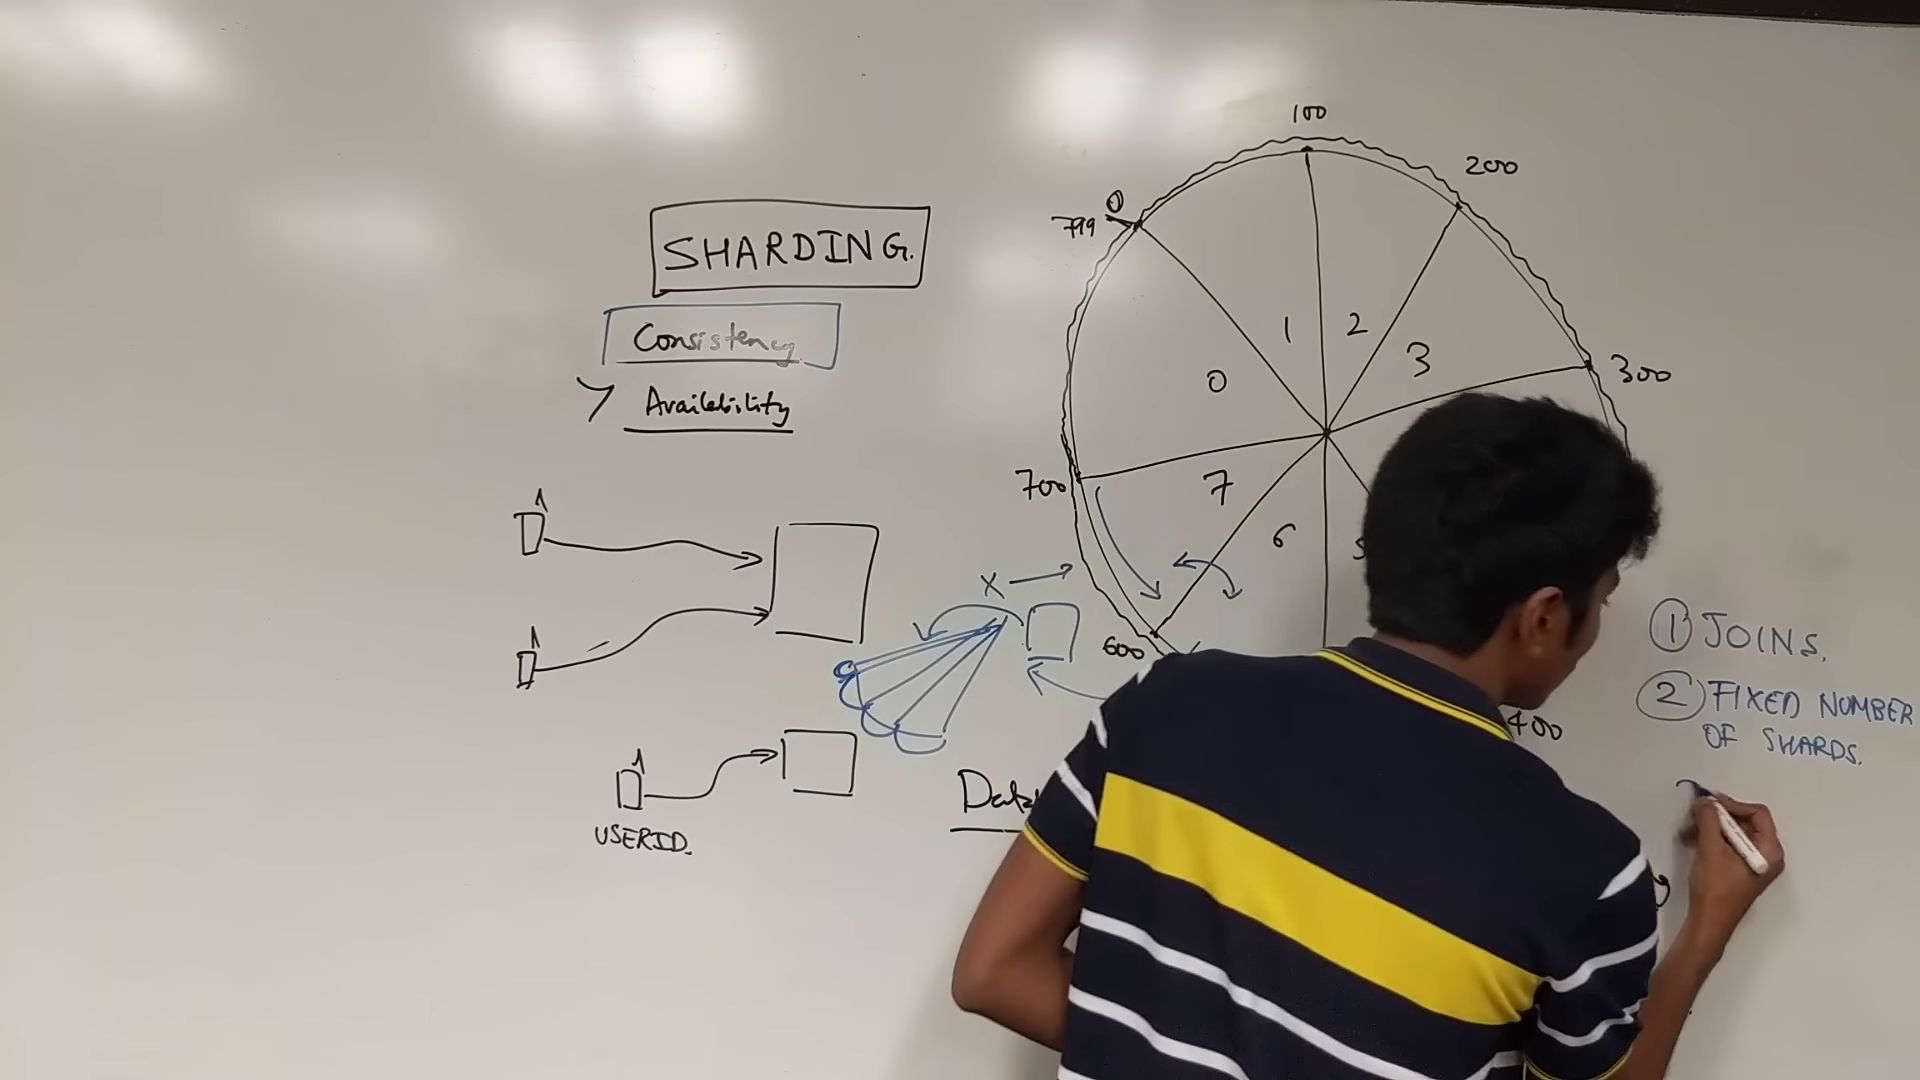 SHARDING.
Consistency
> Availability
USERID.
X
100
200
0
799
300
1
2
3
0
7
6
5
700
600
400
① JOINS.
② FIXED NUMBER
OF SHARDS.